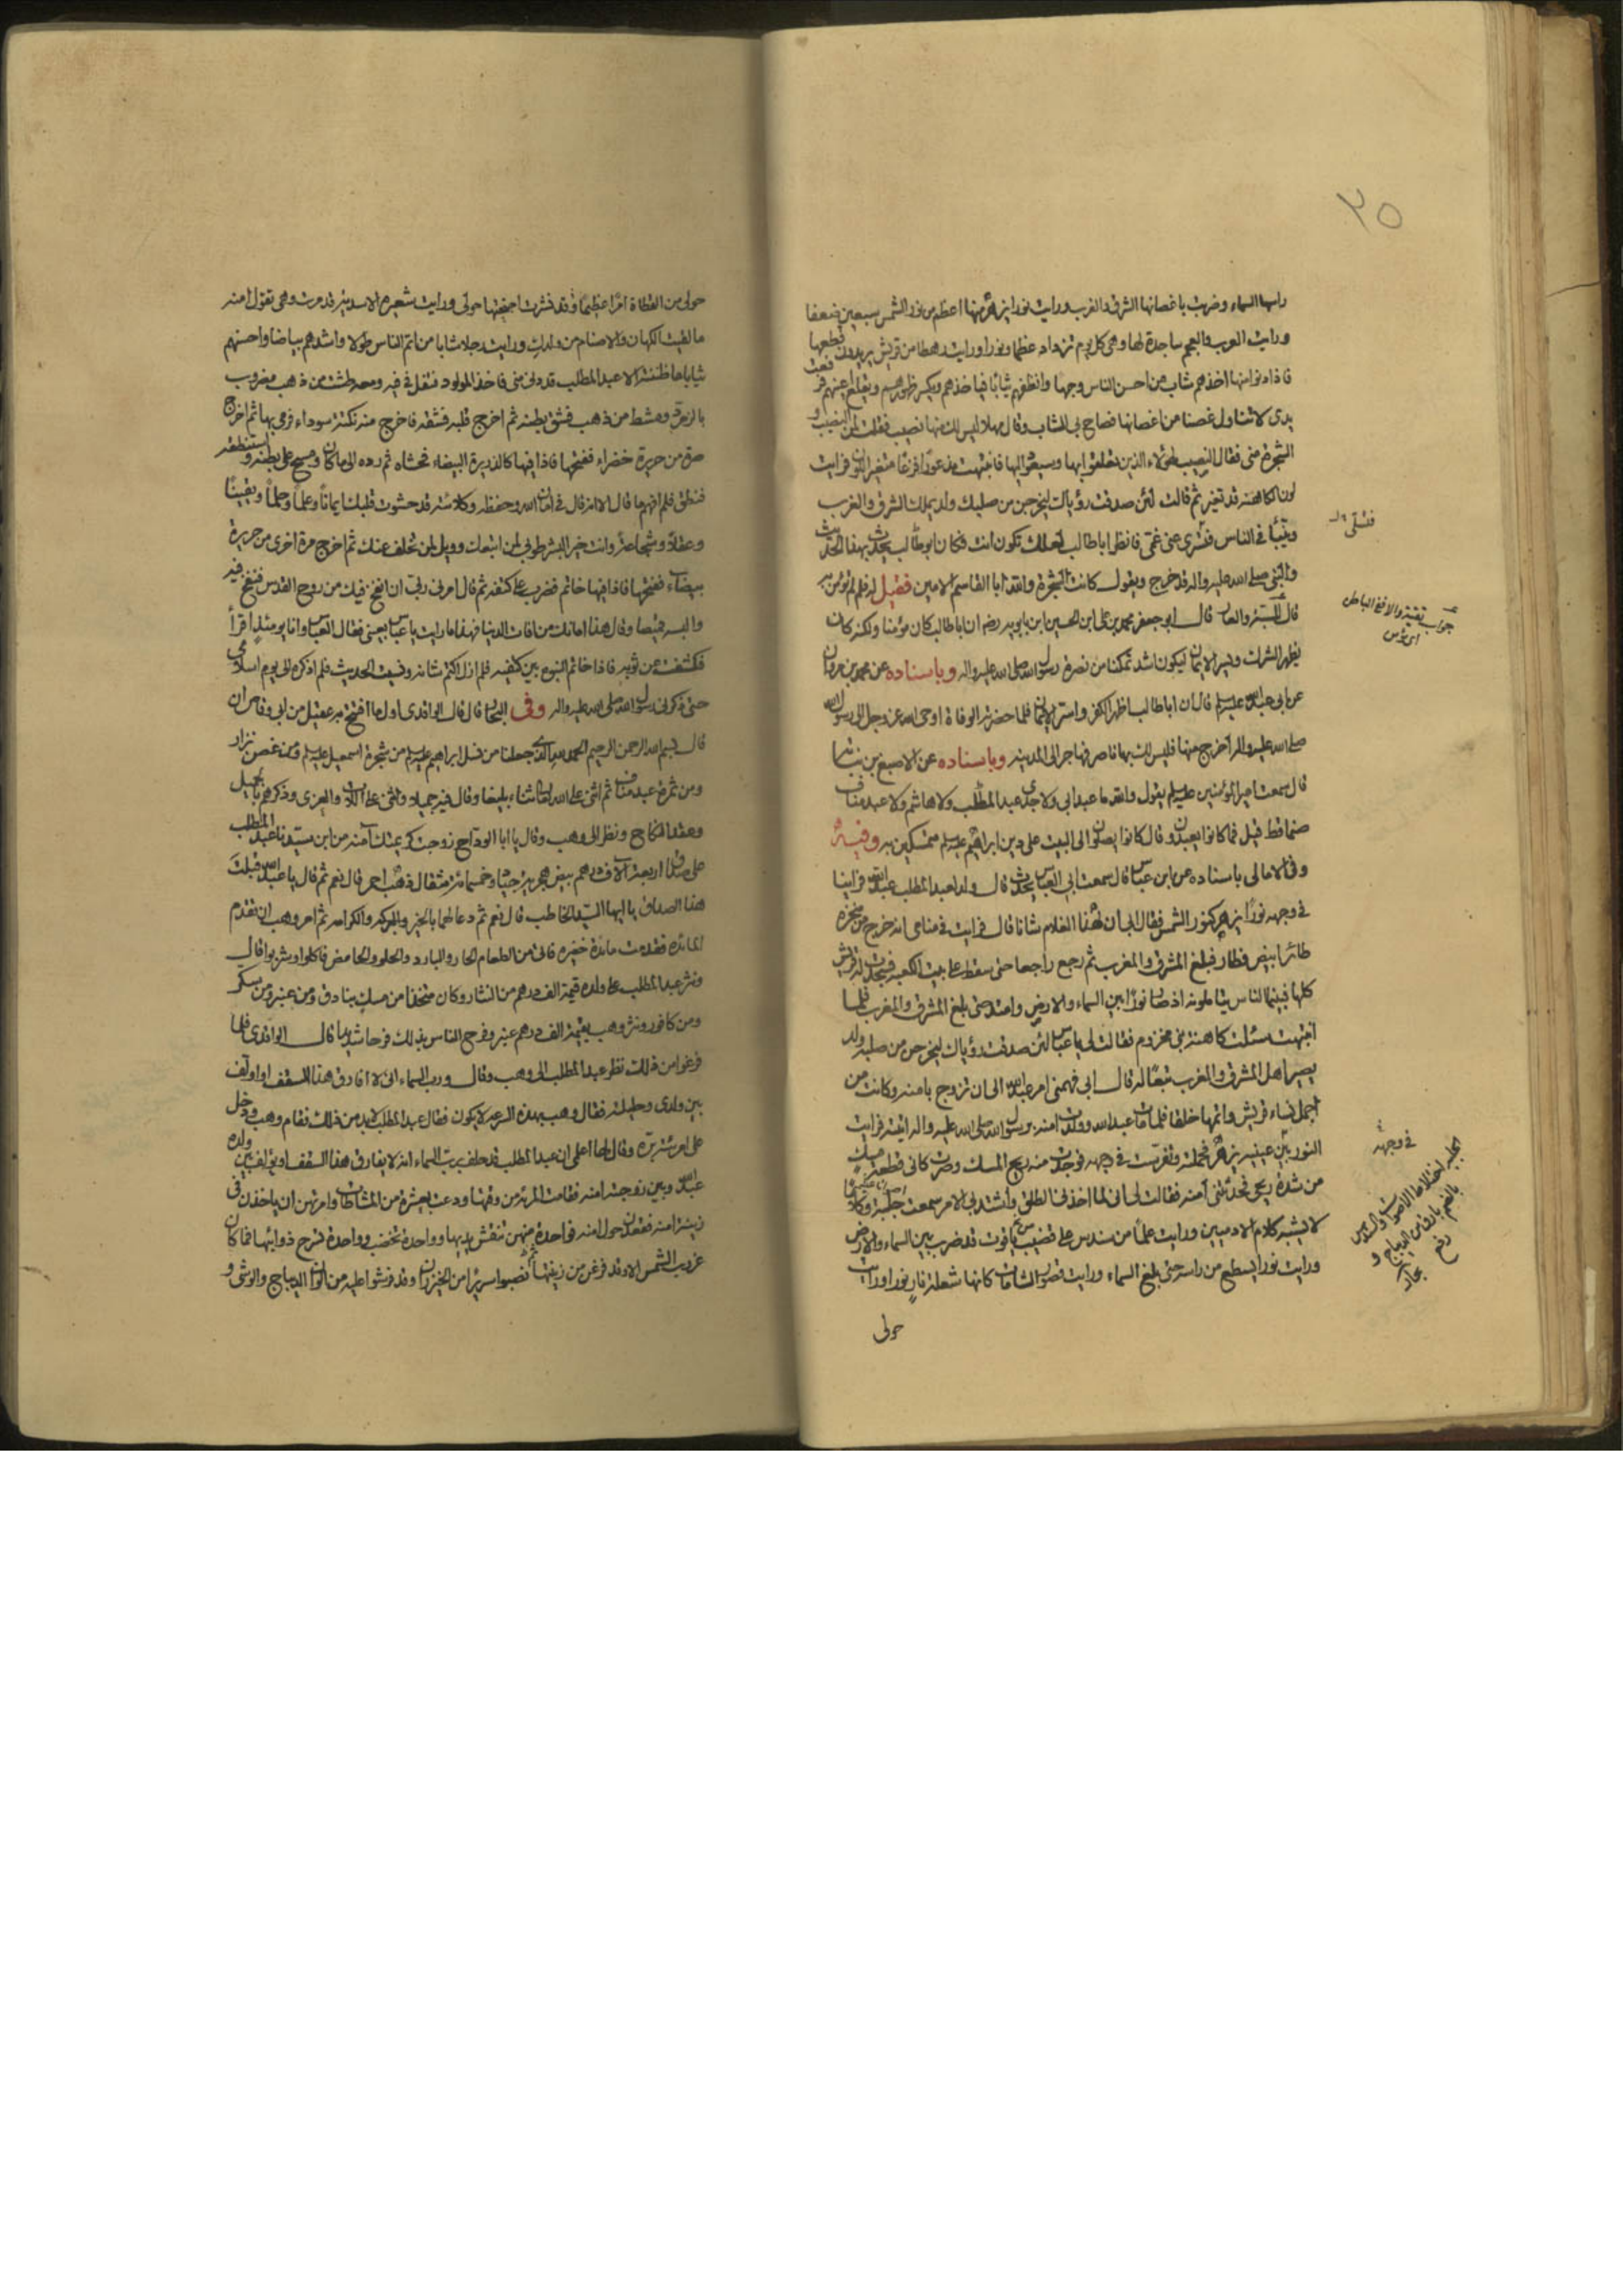 ٢٥
راسها السماء وضربت باغصانها الشرق والغرب ورايت نورا يزهر منها اعظم من نور الشمس سبعين ضعفا
ورايت العرب والعجم ساجدة لها وهي كل يوم تزداد عظما ونورا ورايت رهطا من قريش يريدون قطعها
فاذا دنوا منها اخذهم شاب من احسن الناس وجها وانظفهم ثيابا فياخذهم ويكسر ظهورهم ويقلع اعينهم فرفعت
يدي لاتناول غصنا من اغصانها فصاح بي الشاب وقال مهلا ليس لك منها نصيب فقلت لمن النصيب و
الشجرة مني فقال النصيب لهؤلاء الذين تعلقوا بها وسيعود اليها فانتبهت مذعورا فزعا متغير اللون فرايت
لون الكاهنة قد تغير ثم قالت لئن صدقت رؤياك ليخرجن من صلبك ولد يملك الشرق والغرب
ويتنبأ في الناس فسري عني غمي فانظر ابا طالب لعلك تكون انت فكان ابو طالب يحدث بهذا الحديث
والنبي صلى الله عليه واله قد خرج ويقول كانت الشجرة والله ابا القاسم الامين فقيل له فلم لم تؤمن به
قال للسبة والعار قال ابو جعفر محمد بن علي ابن الحسين ابن بابويه رضه ان ابا طالب كان مؤمنا ولكنه كان
يظهر الشرك ويسر الايمان ليكون اشد تمكنا من نصرة رسول الله صلى الله عليه واله وباسناده عن محمد بن مروان
عن ابي عبد الله عليه السلم قال ان ابا طالب اظهر الكفر واسر الايمان فلما حضرته الوفاة اوحى الله عز وجل الى رسول الله
صلى الله عليه واله اخرج منها فليس لك بها ناصر فهاجر الى المدينة وباسناده عن الاصبغ بن نباتة
قال سمعت امير المؤمنين عليه السلم يقول والله ما عبد ابي ولا جدي عبد المطلب ولا هاشم ولا عبد مناف
صنما قط قيل فما كانوا يعبدون قال كانوا يصلون الى البيت على دين ابراهيم عليه السلم متمسكين به وفيه
وفي الامالي باسناده عن ابن عباس قال سمعت ابي العباس يحدث قال ولد لعبد المطلب عبد الله فراينا
في وجهه نورا يزهر كنور الشمس فقال ابي ان لهذا الغلام شانا قال فرايت في منامي انه خرج من منخره
طائر ابيض فطار فبلغ المشرق والمغرب ثم رجع راجعا حتى سقط على بيت الكعبة فسجدت له قريش
كلها فبينما الناس يتاملونه اذ صار نورا بين السماء والارض وامتد حتى بلغ المشرق والمغرب فلما
انتبهت سئلت كاهنة بني مخزوم فقالت لي يا عباس لئن صدقت رؤياك ليخرجن من صلبه ولد
يصير اهل المشرق والمغرب تبعا له قال ابي فهمني امر عبد الله الى ان تزوج بامنة وكانت من
اجمل نساء قريش واتمها خلقا فلما مات عبد الله وولدت امنة برسول الله صلى الله عليه واله اتيته فرايت
النور بين عينيه يزهر فحملته وتفرست في وجهه فوجدت منه ريح المسك وصرت كاني قطعة مسك
من شدة ريحي فحدثتني آمنة فقالت لي اني لما اخذني الطلق واشتد بي الامر سمعت جلبة وكلاما
لا يشبه كلام الادميين ورايت علما من سندس على قضيب من ياقوت قد ضرب بين السماء والارض
ورايت نورا يسطع من راسه حتى بلغ السماء ورايت قصور الشامات كانها شعلة نار نورا ورايت
حولي
في وجهه
حولي من القطاة امرا عظيما وقد نشرت اجنحتها حولي ورايت شعيرة الاسدية قد مرت وهي تقول امنة
ما لقيت الكهان والاصنام من ولدك ورايت رجلا شابا من اتم الناس طولا واشدهم بياضا واحسنهم
ثيابا ما ظننته الا عبد المطلب قد دنى مني فاخذ المولود فتفل في فيه ومعه طشت من ذهب مضروب
بالزمرد ومشط من ذهب فشق بطنه ثم اخرج قلبه فشقه فاخرج منه نكتة سوداء فرمى بها ثم اخرج
صرة من حريرة خضراء ففتحها فاذا فيها كالذريرة البيضاء فحشاه ثم رده الى ما كان ومسح على بطنه واستنطقه
فنطق فلم افهم ما قال الا انه قال في امان الله وحفظه وكلائته قد حشوت قلبك ايمانا وعلما وحلما ويقينا
وعقلا وشجاعة وانت خير البشر طوبى لمن اتبعك وويل لمن تخلف عنك ثم اخرج صرة اخرى من حريرة
بيضاء ففتحها فاذا فيها خاتم فضرب على كتفيه ثم قال امرني ربي ان انفخ فيك من روح القدس فنفخ فيه
والبسه قميصا وقال هذا امانك من افات الدنيا فهذا ما رايت يا عباس بعيني فقال العباس وانا يومئذ اقرأ
فكشفت عن ثوبه فاذا خاتم النبوة بين كتفيه فلم ازل اكتم شانه ونسيت الحديث فلم اذكره الى يوم اسلامي
حتى ذكرني رسول الله صلى الله عليه واله وفي البحار قال قال الواقدي اول ما افتتح به عقيل من ابي وقاص ان
قال بسم الله الرحمن الرحيم الحمد لله الذي جعلنا من نسل ابراهيم عليه السلم من شجرة اسمعيل عليه السلم ومن غصن نزار
ومن ثمرة عبد مناف ثم اثنى على الله تعالى ثناء بليغا وقال فيه جميلا واثنى على اللات والعزى وذكرهم بجميل
وعقد النكاح ونظر الى وهب وقال يا ابا الوداح زوجت كريمتك آمنة من ابن سيدنا عبد المطلب
على صداق اربعة آلاف درهم بيض هجرية جياد وخمسمائة مثقال ذهب احمر قال نعم ثم قال يا عبد الله قبلت
هذا الصداق يا ايها السيد الخاطب قال نعم ثم دعا لهما بالخير والبركة والكرامة ثم امر وهب ان تقدم
المائدة فقدمت مائدة خضرة فاتي من الطعام الحار والبارد والحلو والحامض فاكلوا وشربوا قال
ونثر عبد المطلب على ولده قيمة الف درهم من النثار وكان متخذا من مسك بنادق ومن عنبر ومن سكر
ومن كافور ونثر وهب بقيمة الف درهم عنبر وفرح الناس بذلك فرحا شديدا قال الواقدي فلما
فرغوا من ذلك نظر عبد المطلب الى وهب وقال ورب السماء اني لا افارق هذا السقف او اؤلف
بين ولدي وحليلته فقال وهب بهذه السرعة لا يكون فقال عبد المطلب لابد من ذلك فقام وهب ودخل
على امرأته برة وقال لها اعلمي ان عبد المطلب قد حلف برب السماء انه لا يفارق هذا السقف او يؤلف بين ولده
عبد الله وبين زوجته امنة فقامت المرئة من وقتها ودعت بعشرة من المشاطات وامرتهن ان ياخذن في
زينة امنة فقعدن حول امنة فواحدة منهن تنقش يديها وواحدة تخضب وواحدة تسرح ذوائبها فما كان
غروب الشمس الا وقد فرغن من زينتها نصبوا سريرا من الخيزران وقد فرشوا عليه من الوان الديباج والوشي و